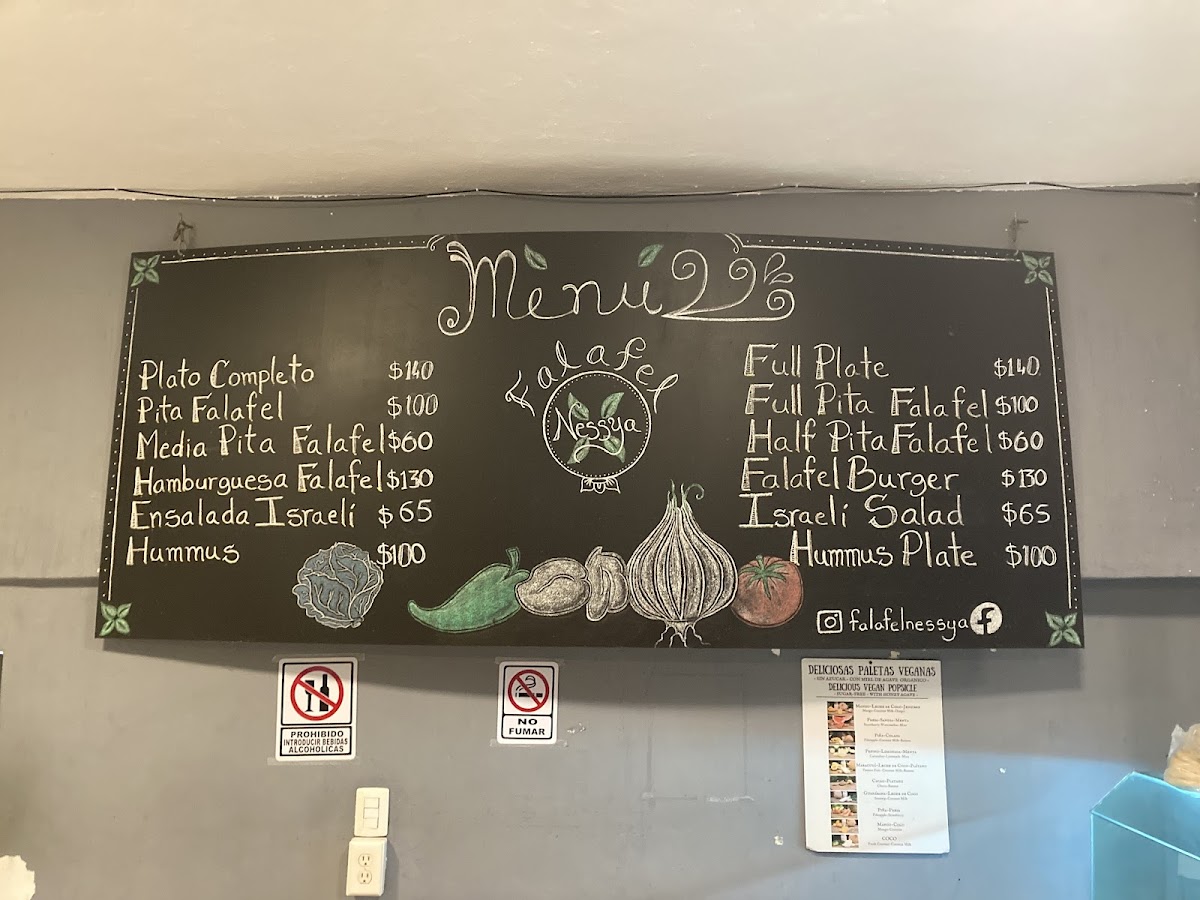 Menú
Falafel
Nessya
Plato Completo $140
Pita Falafel $100
Media Pita Falafel $60
Hamburguesa Falafel $130
Ensalada Israelí $65
Hummus $100
Full Plate $140
Full Pita Falafel $100
Half Pita Falafel $60
Falafel Burger $130
Israelí Salad $65
Hummus Plate $100
falafelnessya
PROHIBIDO
INTRODUCIR BEBIDAS
ALCOHOLICAS
NO
FUMAR
DELICIOSAS PALETAS VEGANAS
- SIN AZUCAR - CON MIEL DE AGAVE ORGANICO -
DELICIOUS VEGAN POPSICLE
- SUGAR FREE - WITH HONEY AGAVE -
COCO